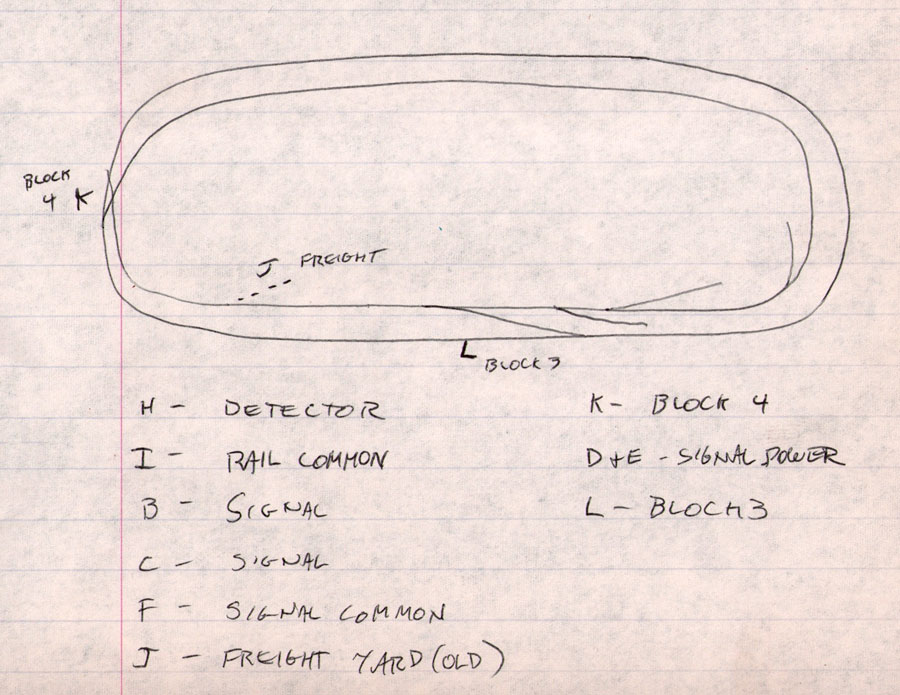 BLOCK
4 K
J FREIGHT
L BLOCK 3
H - DETECTOR
I - RAIL COMMON
B - SIGNAL
C - SIGNAL
F - SIGNAL COMMON
J - FREIGHT YARD (OLD)
K - BLOCK 4
D + E - SIGNAL POWER
L - BLOCK 3